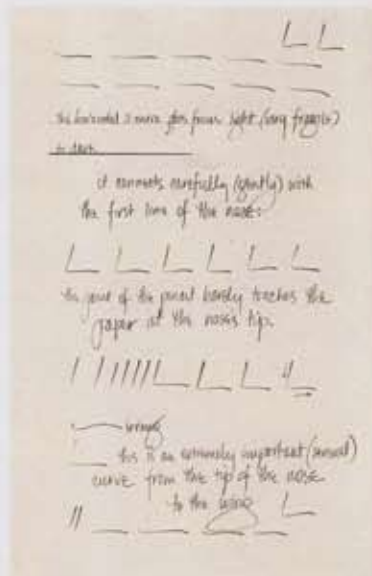 this horizontal is more from light (very fragile)
to dark
it connects carefully (gently) with
the first line of the nose:
the point of the pencil barely touches the
paper at the nose's tip.
wrong
this is an extremely important (sensual)
curve from the tip of the nose
to the wing